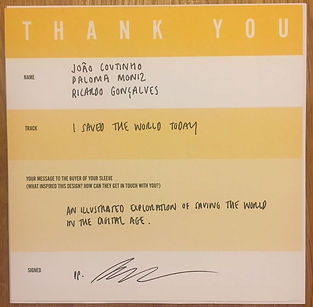 THANK YOU
NAME
JOÃO COUTINHO
PALOMA MONIZ
RICARDO GONÇALVES
TRACK
I SAVED THE WORLD TODAY
YOUR MESSAGE TO THE BUYER OF YOUR SLEEVE
(WHAT INSPIRED THIS DESIGN? HOW CAN THEY GET IN TOUCH WITH YOU?)
AN ILLUSTRATED EXPLORATION OF SAVING THE WORLD
IN THE DIGITAL AGE.
SIGNED
PP.